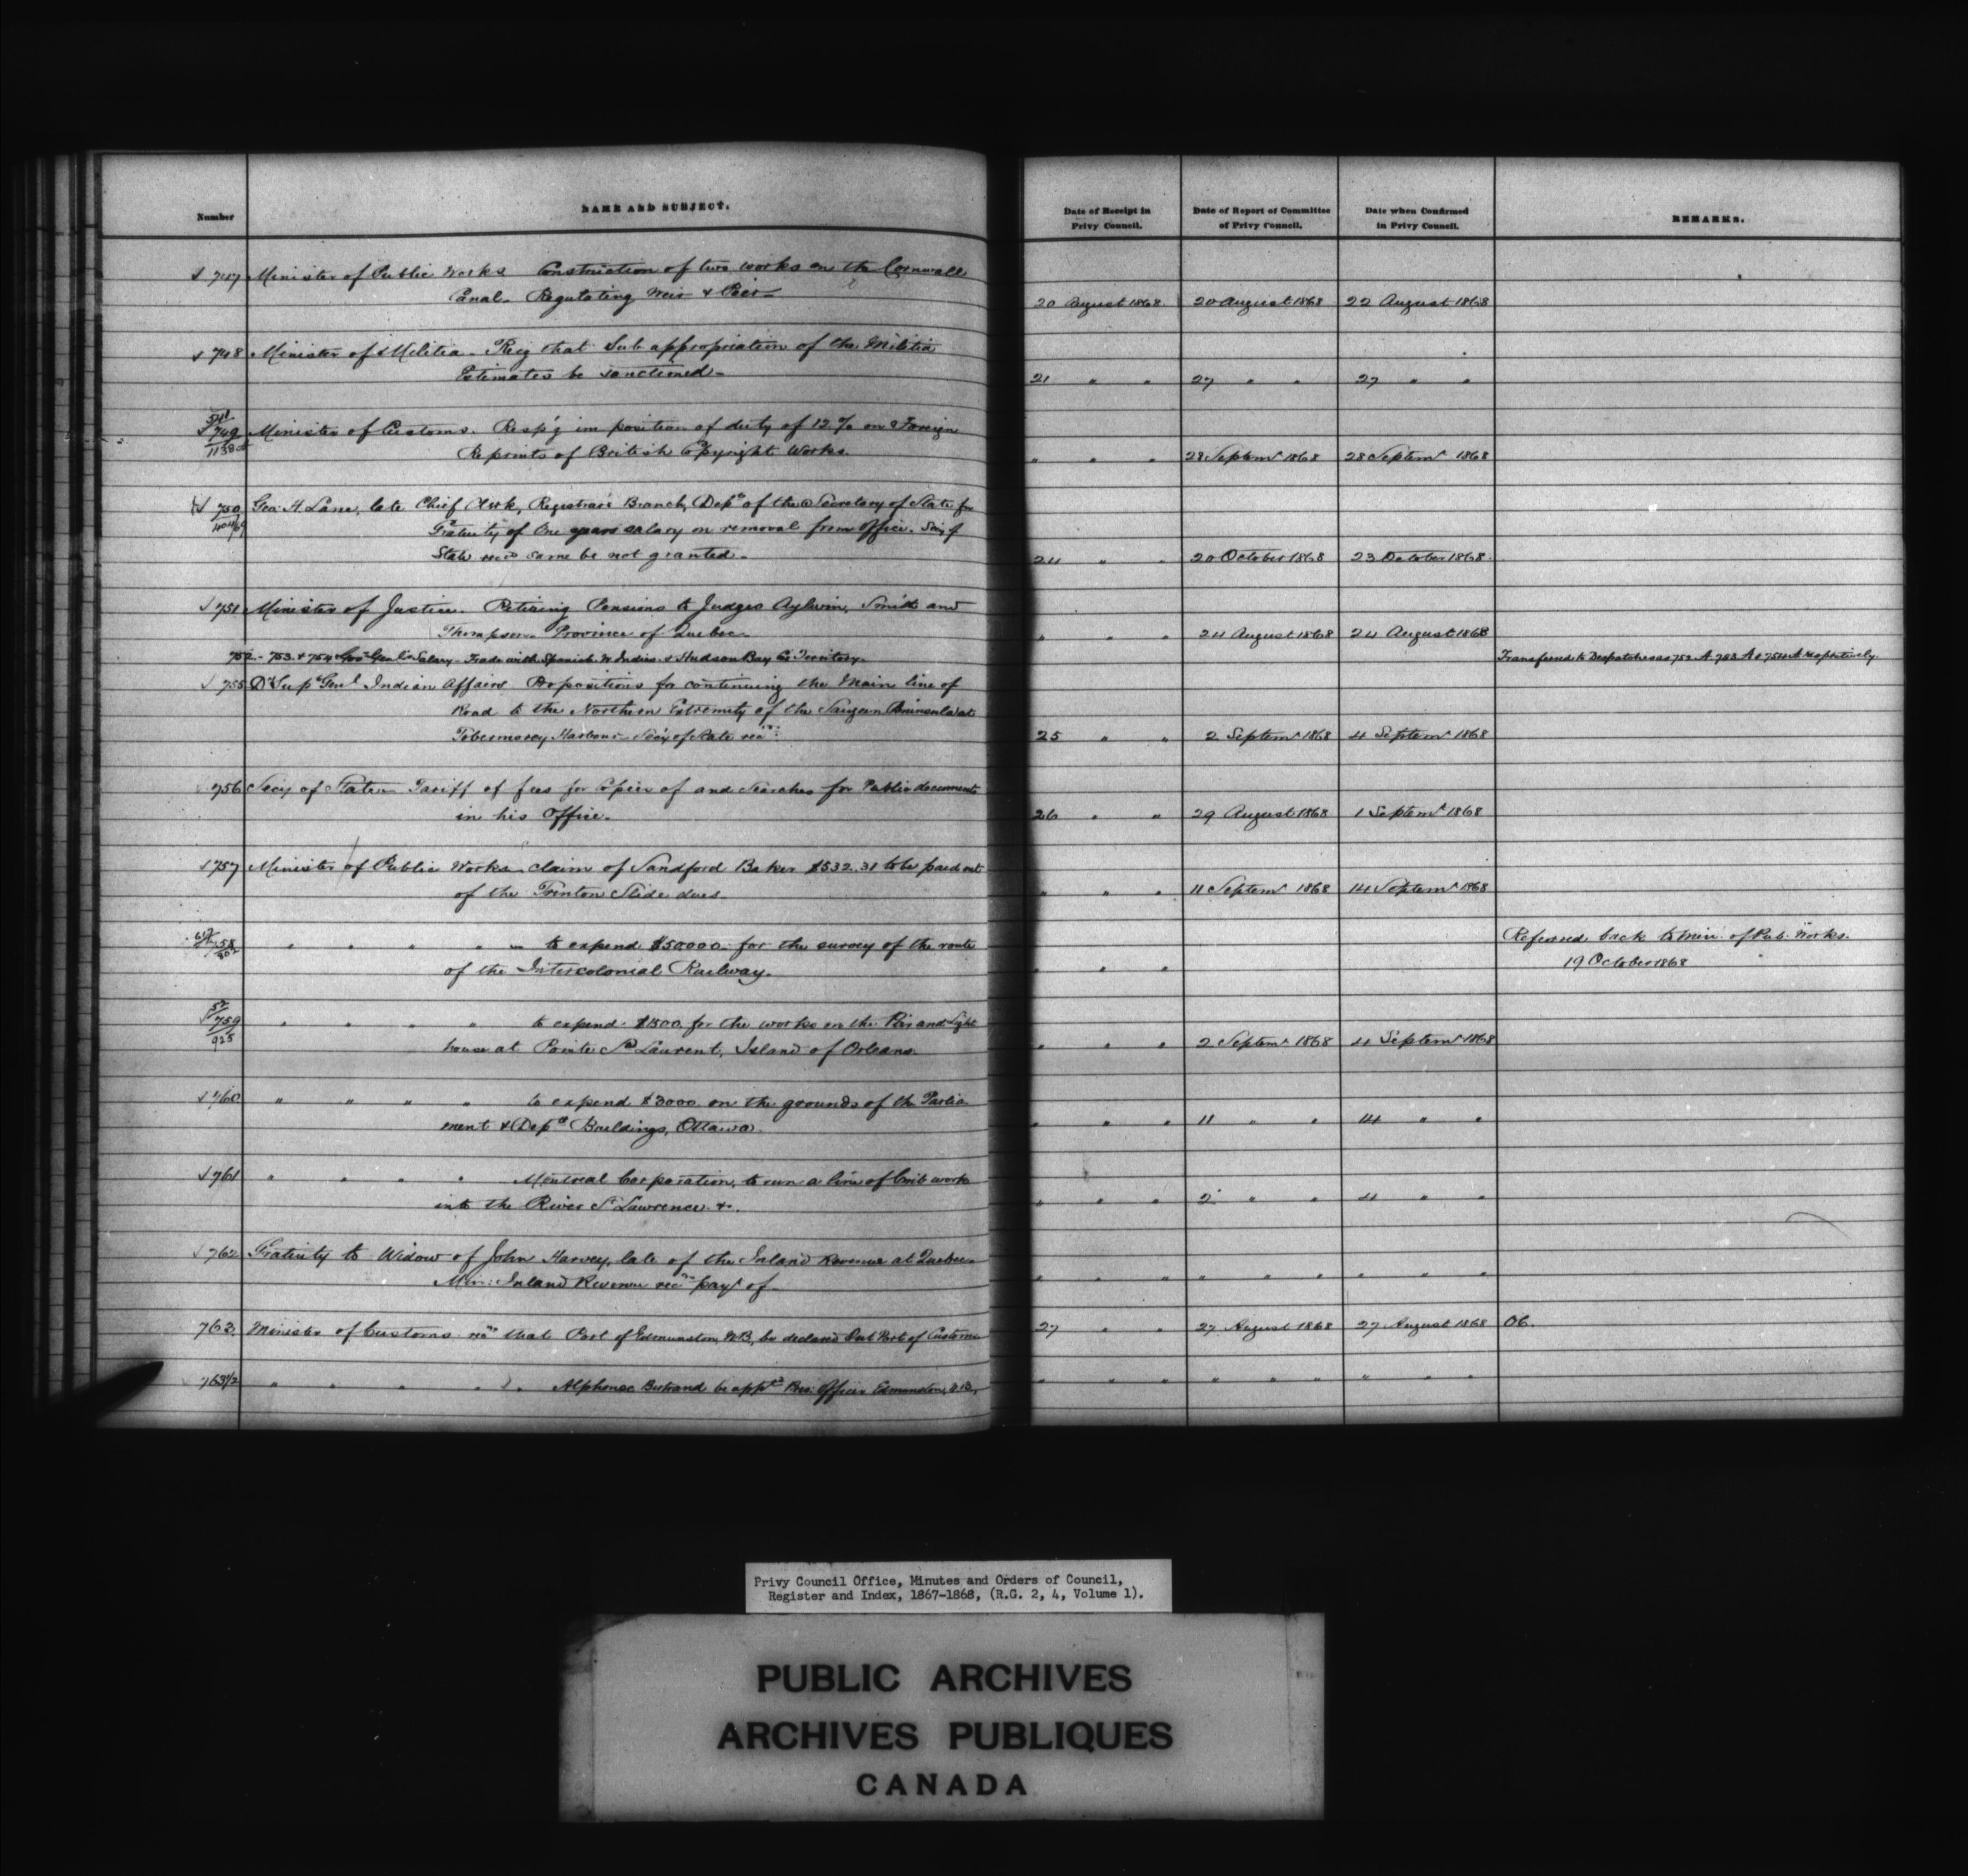 Number
NAME AND SUBJECT.
Date of Receipt in Privy Council.
Date of Report of Committee of Privy Council.
Date when Confirmed in Privy Council.
REMARKS.
747 Minister of Public Works Construction of two works on the Cornwall
Canal - Regulating Weir & Pier -
20 August 1868 20 August 1868 22 August 1868
748 Minister of Militia - Req that Sub appropriation of the Militia
Estimates be sanctioned -
21 " " 27 " " 27 " "
541
749 Minister of Customs. Resp'g imposition of duty of 12 % on Foreign
1138
Reprints of British Copyright Works.
" " " 28 Septemr 1868 28 Septemr 1868
750 Geo. H. Lane, late Chief Clerk, Registrars Branch, Dept of the Secretary of State for
Gratuity of One years salary on removal from office. Secy of
State recd same be not granted -
24 " " 20 October 1868 23 October 1868
751 Minister of Justice. Retiring Pensions to Judges Aylwin, Smith and
Thompson - Province of Quebec -
" " " 24 August 1868 24 August 1868
752 - 753 & 754 Govr Genl's Salary - Trade with Spanish W Indies & Hudson Bay Co Territory.
Transferred to Despatches as 752 A 753 A & 754 A respectively
755 Dy Supt Genl Indian Affairs Propositions for continuing the Main line of
Road to the Northern Extremity of the Saugeen Peninsula at
Tobermorey Harbour - Secy of State recd
25 " " 2 Septemr 1868 4 Septemr 1868
756 Secy of State - Tariff of fees for Copies of and Searches for Public documents
in his Office -
26 " " 29 August 1868 1 Septemr 1868
757 Minister of Public Works claim of Sandford Baker $532.31 to be paid out
of the Trenton Slide dues -
" " " 11 Septemr 1868 14 Septemr 1868
758 " " " " " to expend $50000 for the survey of the route
802
of the Intercolonial Railway.
" " "
Referred back to Min. of Pub. Works.
19 October 1868
52
759 " " " " to expend $1300 for the works on the Pier and Light
925
house at Pointe St Laurent, Island of Orleans.
" " " 2 Septemr 1868 4 Septemr 1868
760 " " " " to expend $3000 on the grounds of the Parlia
ment & Depl Buildings, Ottawa.
" " " 11 " " 14 " "
761 " " " " Montreal Corporation, to run a line of Crib work
into the River St Lawrence &.
" " " 2 " " 4 " "
762 Gratuity to Widow of John Harvey, late of the Inland Revenue at Quebec -
Min: Inland Revenue recds payt of -
" " " " " " " " "
763 Minister of Customs recds that Port of Edmunston, N.B., be declared Out Port of Customs
27 " " 27 August 1868 27 August 1868 OC.
763 1/2 " " " " Alphonse Bertrand be apptd Pre: Officer Edmunston, N.B.
" " " " " " " " "
Privy Council Office, Minutes and Orders of Council,
Register and Index, 1867-1868, (R.G. 2, 4, Volume 1).
PUBLIC ARCHIVES
ARCHIVES PUBLIQUES
CANADA